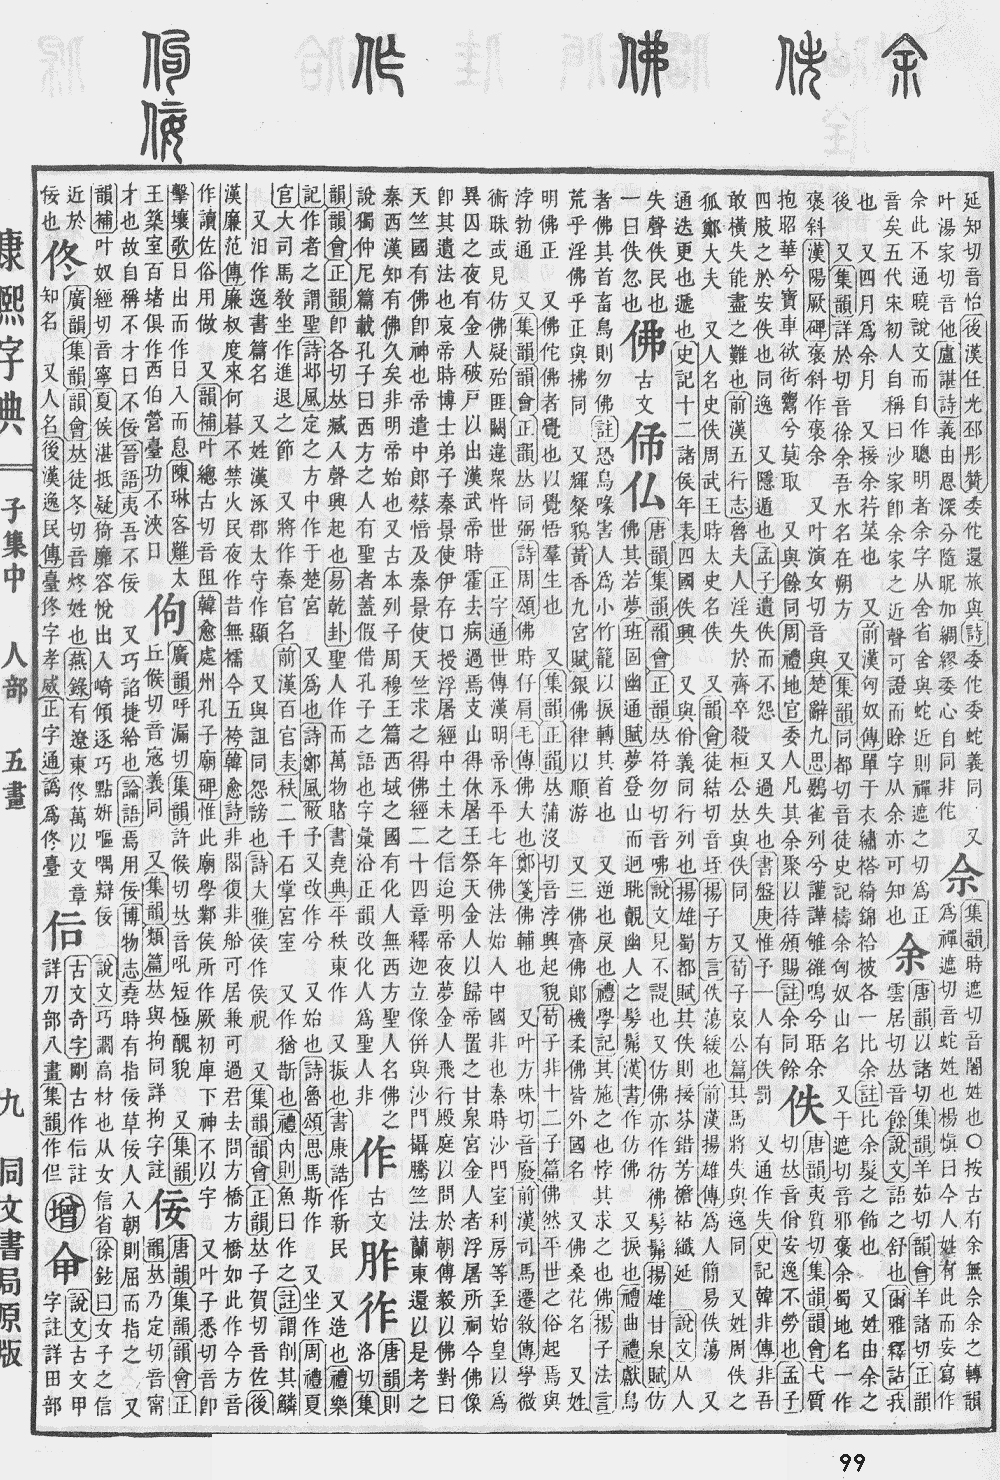 余 佚 佛 作 佝 佞
延知切音怡後漢任光邳彤贊委佗還旅與詩委佗委蛇義同 又
叶湯家切音他盧諶詩義由恩深分隨昵加綢繆委心自同非佗
佘 集韻時遮切音闍姓也○按古有余無佘余之轉韻
爲禪遮切音蛇姓也楊愼曰今人姓有此而妄寫作
佘此不通曉說文而自作聰明者余字从舍省舍與蛇近則禪遮之切爲正
音矣五代宋初人自稱曰沙家卽余家之近聲可證而賖字从余亦可知也
余 唐韻以諸切集韻羊茹切韻會羊諸切正韻
雲居切𠀤音餘說文語之舒也爾雅釋詁我
也 又四月爲余月 又接余荇菜也 又前漢匈奴傳單于衣繡袷綺錦袷被各一比余註比余髮之飾也 又姓由余之
後 又集韻詳於切音徐余吾水名在朔方 又集韻同都切音徒史記檮余匈奴山名 又于遮切音邪褒余蜀地名一作
褒斜漢陽厥碑褒斜作褒余 又叶演女切音與楚辭九思鷃雀列兮讙譁雊鵒鳴兮聒余
抱昭華兮寶車欲衒鬻兮莫取 又與餘同周禮地官委人凡其余聚以待頒賜註余同餘
佚 唐韻夷質切集韻韻會弋質
切𠀤音佾安逸不勞也孟子
四肢之於安佚也同逸 又隱遁也孟子遺佚而不怨 又過失也書盤庚惟予一人有佚罰 又通作失史記韓非傳非吾
敢橫失能盡之難也前漢五行志魯夫人淫失於齊卒殺桓公𠀤與佚同 又荀子哀公篇其馬將失與逸同 又姓周佚之
狐鄭大夫 又人名史佚周武王時太史名佚 又韻會徒結切音垤揚子方言佚蕩緩也前漢揚雄傳爲人簡易佚蕩 又
通迭更也遞也史記十二諸侯年表四國佚興 又與佾義同行列也揚雄蜀都賦其佚則接芬錯芳襜袩纖延 說文从人
失聲佚民也
一曰佚忽也
佛 古文 㑄仏
唐韻集韻韻會正韻𠀤符勿切音咈說文見不諟也又仿佛亦作彷彿髣髴揚雄甘泉賦仿
佛其若夢班固幽通賦夢登山而迥眺覿幽人之髣髴漢書作仿佛 又捩也禮曲禮獻鳥
者佛其首畜鳥則勿佛註恐鳥喙害人爲小竹籠以捩轉其首也 又逆也戾也禮學記其施之也悖其求之也佛揚子法言
荒乎淫佛乎正與拂同 又輝發貌黃香九宮賦銀佛律以順游 又三佛齊佛郞機柔佛皆外國名 又佛桑花名 又姓
明佛正 又佛佗佛者覺也以覺悟羣生也 又集韻正韻𠀤蒲沒切音浡興起貌荀子非十二子篇佛然平世之俗起焉與
浡勃通 又集韻韻會正韻𠀤同弼詩周頌佛時仔肩毛傳佛大也鄭箋佛輔也 又叶方味切音廢前漢司馬遷敘傳學微
術昧或見仿佛疑殆匪闕違衆忤世 正字通世傳漢明帝永平七年佛法始入中國非也秦時沙門室利房等至始皇以爲
異囚之夜有金人破戸以出漢武帝時霍去病過焉支山得休屠王祭天金人以歸帝置之甘泉宮金人者浮屠所祠今佛像
卽其遺法也哀帝時博士弟子秦景使伊存口授浮屠經中土未之信迨明帝夜夢金人飛行殿庭以問於朝傅毅以佛對曰
天竺國有佛卽神也帝遣中郞蔡愔及秦景使天竺求之得佛經二十四章釋迦立像倂與沙門攝騰竺法蘭東還以是考之
秦西漢知有佛久矣非明帝始也又古本列子周穆王篇西域之國有化人無西方聖人名佛之
說獨仲尼篇載孔子曰西方之人有聖者蓋假借孔子之語也字彙沿正韻改化人爲聖人非
作 古文 胙㣅
唐韻則
洛切集
韻韻會正韻卽各切𠀤臧入聲興起也易乾卦聖人作而萬物睹書堯典平秩東作 又振也書康誥作新民 又造也禮樂
記作者之謂聖詩鄘風定之方中作于楚宮 又爲也詩鄭風敝予又改作兮 又始也詩魯頌思馬斯作 又坐作周禮夏
官大司馬敎坐作進退之節 又將作秦官名前漢百官表秩二千石掌宮室 又作猶斮也禮內則魚曰作之註謂削其鱗
又汨作逸書篇名 又姓漢涿郡太守作顯 又與詛同怨謗也詩大雅侯作侯祝 又集韻韻會正韻𠀤子賀切音佐後
漢廉范傳廉叔度來何暮不禁火民夜作昔無襦今五袴韓愈詩非閣復非船可居兼可過君去問方橋方橋如此作今方音
作讀佐俗用做 又韻補叶總古切音阻韓愈處州孔子廟碑惟此廟學鄴侯所作厥初庳下神不以宇 又叶子悉切音卽
擊壤歌日出而作日入而息陳琳客難太
王築室百堵俱作西伯營臺功不浹日
佝 廣韻呼漏切集韻許候切𠀤音吼短極醜貌 又集韻
丘候切音寇義同 又集韻類篇𠀤與拘同詳拘字註
佞 唐韻集韻韻會正
韻𠀤乃定切音甯
才也故自稱不才曰不佞晉語夷吾不佞 又巧諂捷給也論語焉用佞博物志堯時有指佞草佞人入朝則屈而指之 又
韻補叶奴經切音寧夏侯湛抵疑猗靡容悅出入崎傾逐巧點姸嘔喁辯佞 說文巧讇高材也从女信省徐鉉曰女子之信
近於
佞也
佟 廣韻集韻韻會𠀤徒冬切音彤姓也燕錄有遼東佟萬以文章
知名 又人名後漢逸民傳臺佟字孝威正字通譌爲佟臺
㐰 古文奇字剛古作信註
詳刀部八畫集韻作但
增 㑒 說文古文甲
字註詳田部
康熙字典 子集中 人部 五畫 九 同文書局原版
99